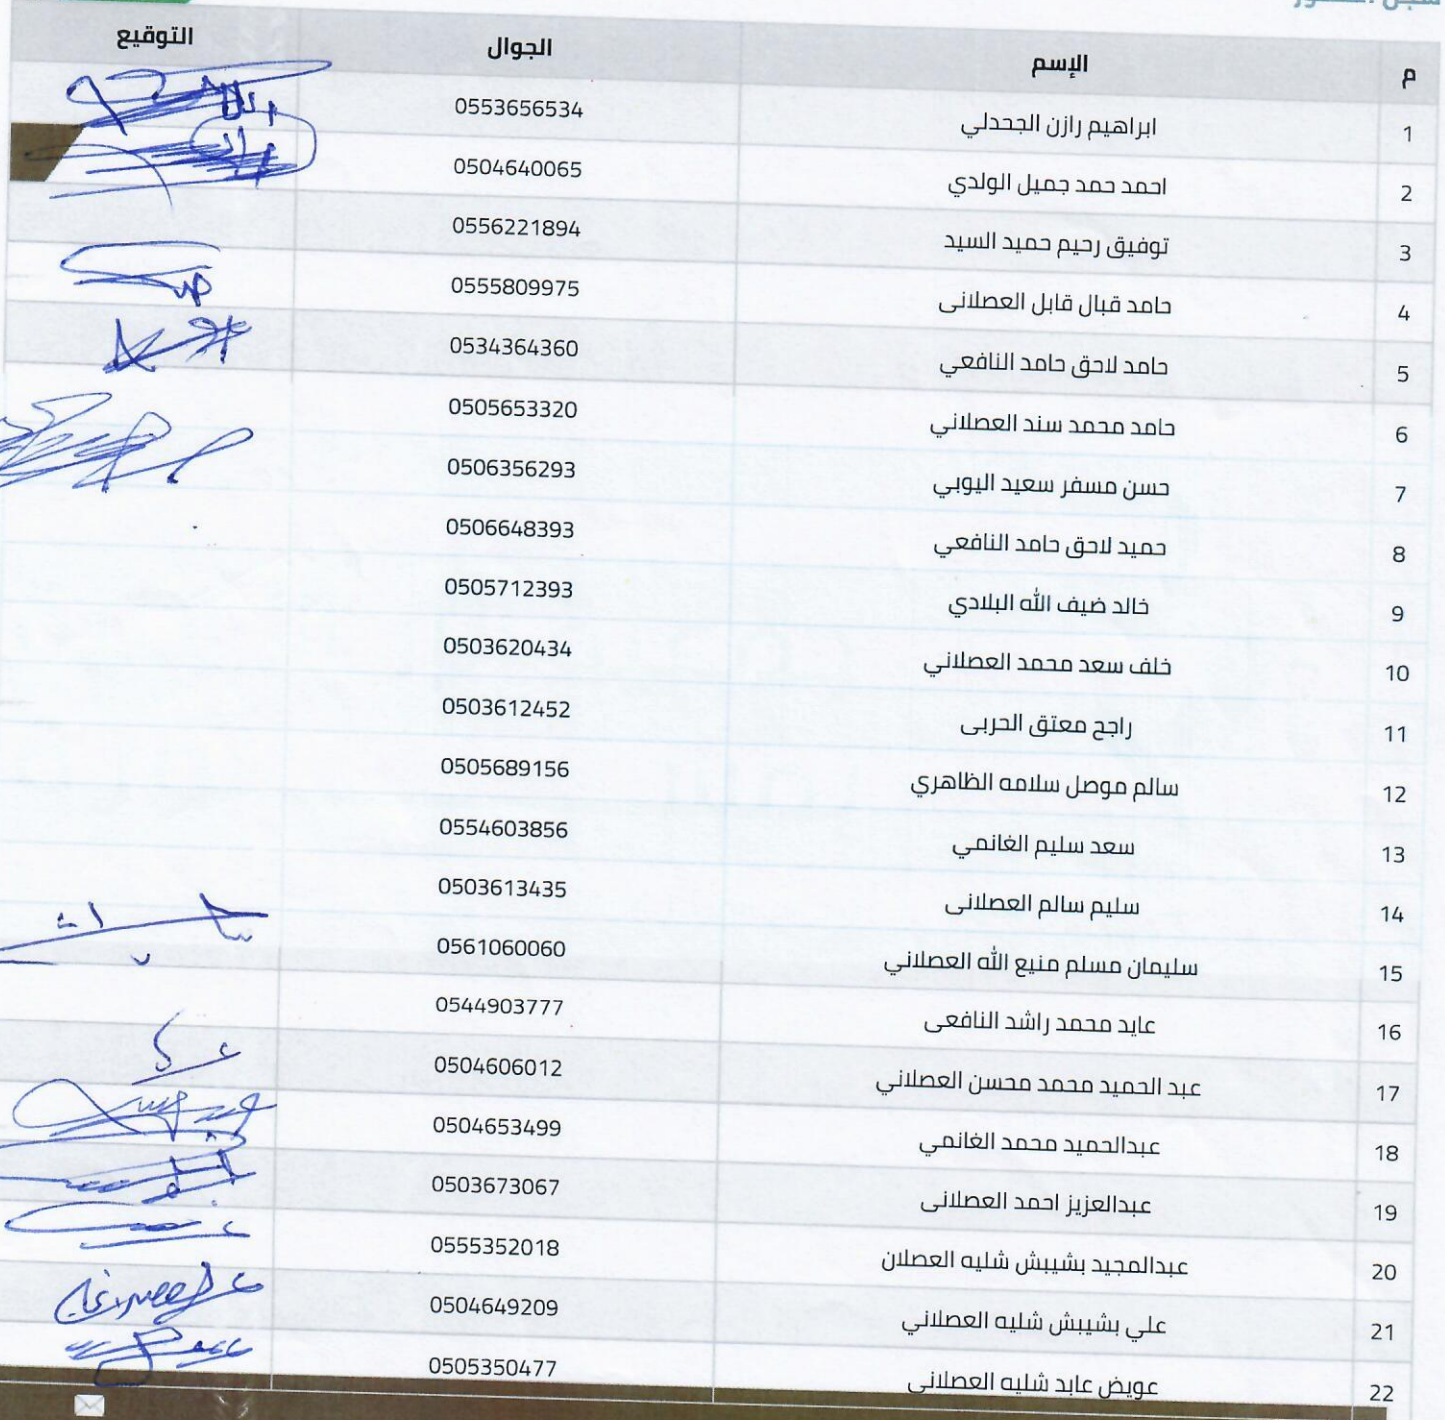 م الإسم الجوال التوقيع
1 ابراهيم رازن الجحدلي 0553656534
2 احمد حمد جميل الولدي 0504640065
3 توفيق رحيم حميد السيد 0556221894
4 حامد قبال قابل العصلانى 0555809975
5 حامد لاحق حامد النافعي 0534364360
6 حامد محمد سند العصلاني 0505653320
7 حسن مسفر سعيد اليوبي 0506356293
8 حميد لاحق حامد النافعي 0506648393
9 خالد ضيف الله البلادي 0505712393
10 خلف سعد محمد العصلاني 0503620434
11 راجح معتق الحربى 0503612452
12 سالم موصل سلامه الظاهري 0505689156
13 سعد سليم الغانمي 0554603856
14 سليم سالم العصلانى 0503613435
15 سليمان مسلم منيع الله العصلاني 0561060060
16 عايد محمد راشد النافعى 0544903777
17 عبد الحميد محمد محسن العصلاني 0504606012
18 عبدالحميد محمد الغانمي 0504653499
19 عبدالعزيز احمد العصلانى 0503673067
20 عبدالمجيد بشيبش شليه العصلان 0555352018
21 علي بشيبش شليه العصلاني 0504649209
22 عويض عابد شليه العصلانى 0505350477